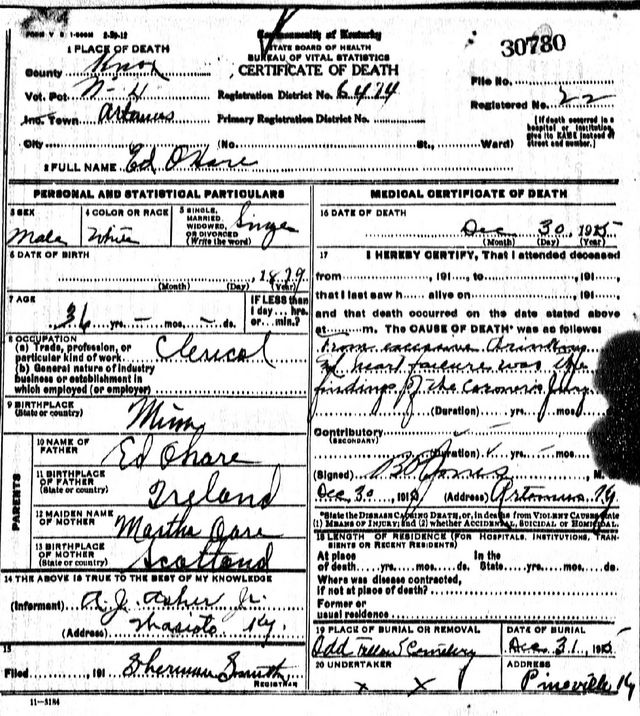 FORM V. S. 1-500M 2-29-12
Commonwealth of Kentucky
STATE BOARD OF HEALTH
BUREAU OF VITAL STATISTICS
CERTIFICATE OF DEATH
30780
1 PLACE OF DEATH
County Knox
Vot. Pct N-4
Inc. Town Artemus
City
Registration District No. 6474
Primary Registration District No.
(No. St., Ward)
File No.
Registered No. 22
[If death occurred in a hospital or institution, give its NAME instead of street and number.]
2 FULL NAME Ed O'Hare
PERSONAL AND STATISTICAL PARTICULARS
3 SEX
Male
4 COLOR OR RACE
White
5 SINGLE, MARRIED, WIDOWED, OR DIVORCED
(Write the word)
Single
6 DATE OF BIRTH
, 1879
(Month) (Day) (Year)
7 AGE
36 yrs. — mos. — ds.
IF LESS than 1 day hrs. or min.?
8 OCCUPATION
(a) Trade, profession, or particular kind of work Clerical
(b) General nature of industry business or establishment in which employed (or employer)
9 BIRTHPLACE
(State or country) Minn
PARENTS
10 NAME OF FATHER Ed Ohare
11 BIRTHPLACE OF FATHER
(State or country) Ireland
12 MAIDEN NAME OF MOTHER Martha
13 BIRTHPLACE OF MOTHER
(State or country) Scotland
14 THE ABOVE IS TRUE TO THE BEST OF MY KNOWLEDGE
(Informant) A. J. Asher Jr.
(Address) Wasioto Ky.
15
Filed , 191 Sherman Smith
REGISTRAR
11—3184
MEDICAL CERTIFICATE OF DEATH
16 DATE OF DEATH
Dec 30 1915
(Month) (Day) (Year)
17 I HEREBY CERTIFY, That I attended deceased
from , 191 , to , 191 ,
that I last saw h alive on , 191 ,
and that death occurred on the date stated above
at m. The CAUSE OF DEATH* was as follows:
From excessive drinking
heart failure was the
findings of the Coroner's Jury
(Duration) yrs. mos.
Contributory
(SECONDARY)
(Duration) yrs. mos.
(Signed) Jones, M.
Dec 30, 1915 (Address) Artemus, Ky
*State the DISEASE CAUSING DEATH, or, in deaths from VIOLENT CAUSES, state
(1) MEANS OF INJURY; and (2) whether ACCIDENTAL, SUICIDAL or HOMICIDAL.
18 LENGTH OF RESIDENCE (FOR HOSPITALS, INSTITUTIONS, TRANSIENTS OR RECENT RESIDENTS)
At place of death yrs. mos. ds. In the State yrs. mos. ds.
Where was disease contracted,
if not at place of death?
Former or
usual residence
19 PLACE OF BURIAL OR REMOVAL
Odd Fellows Cemetery
DATE OF BURIAL
Dec 31, 1915
20 UNDERTAKER
x x
ADDRESS
Pineville Ky